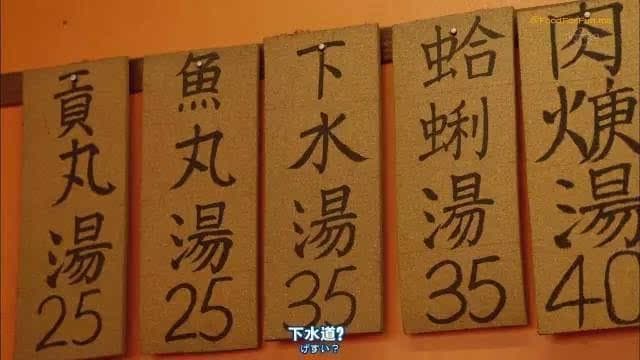 @FoodForFun.me
貢丸湯
25
魚丸湯
25
下水湯
35
蛤蜊湯
35
肉焿湯
40
下水道?
げすい?